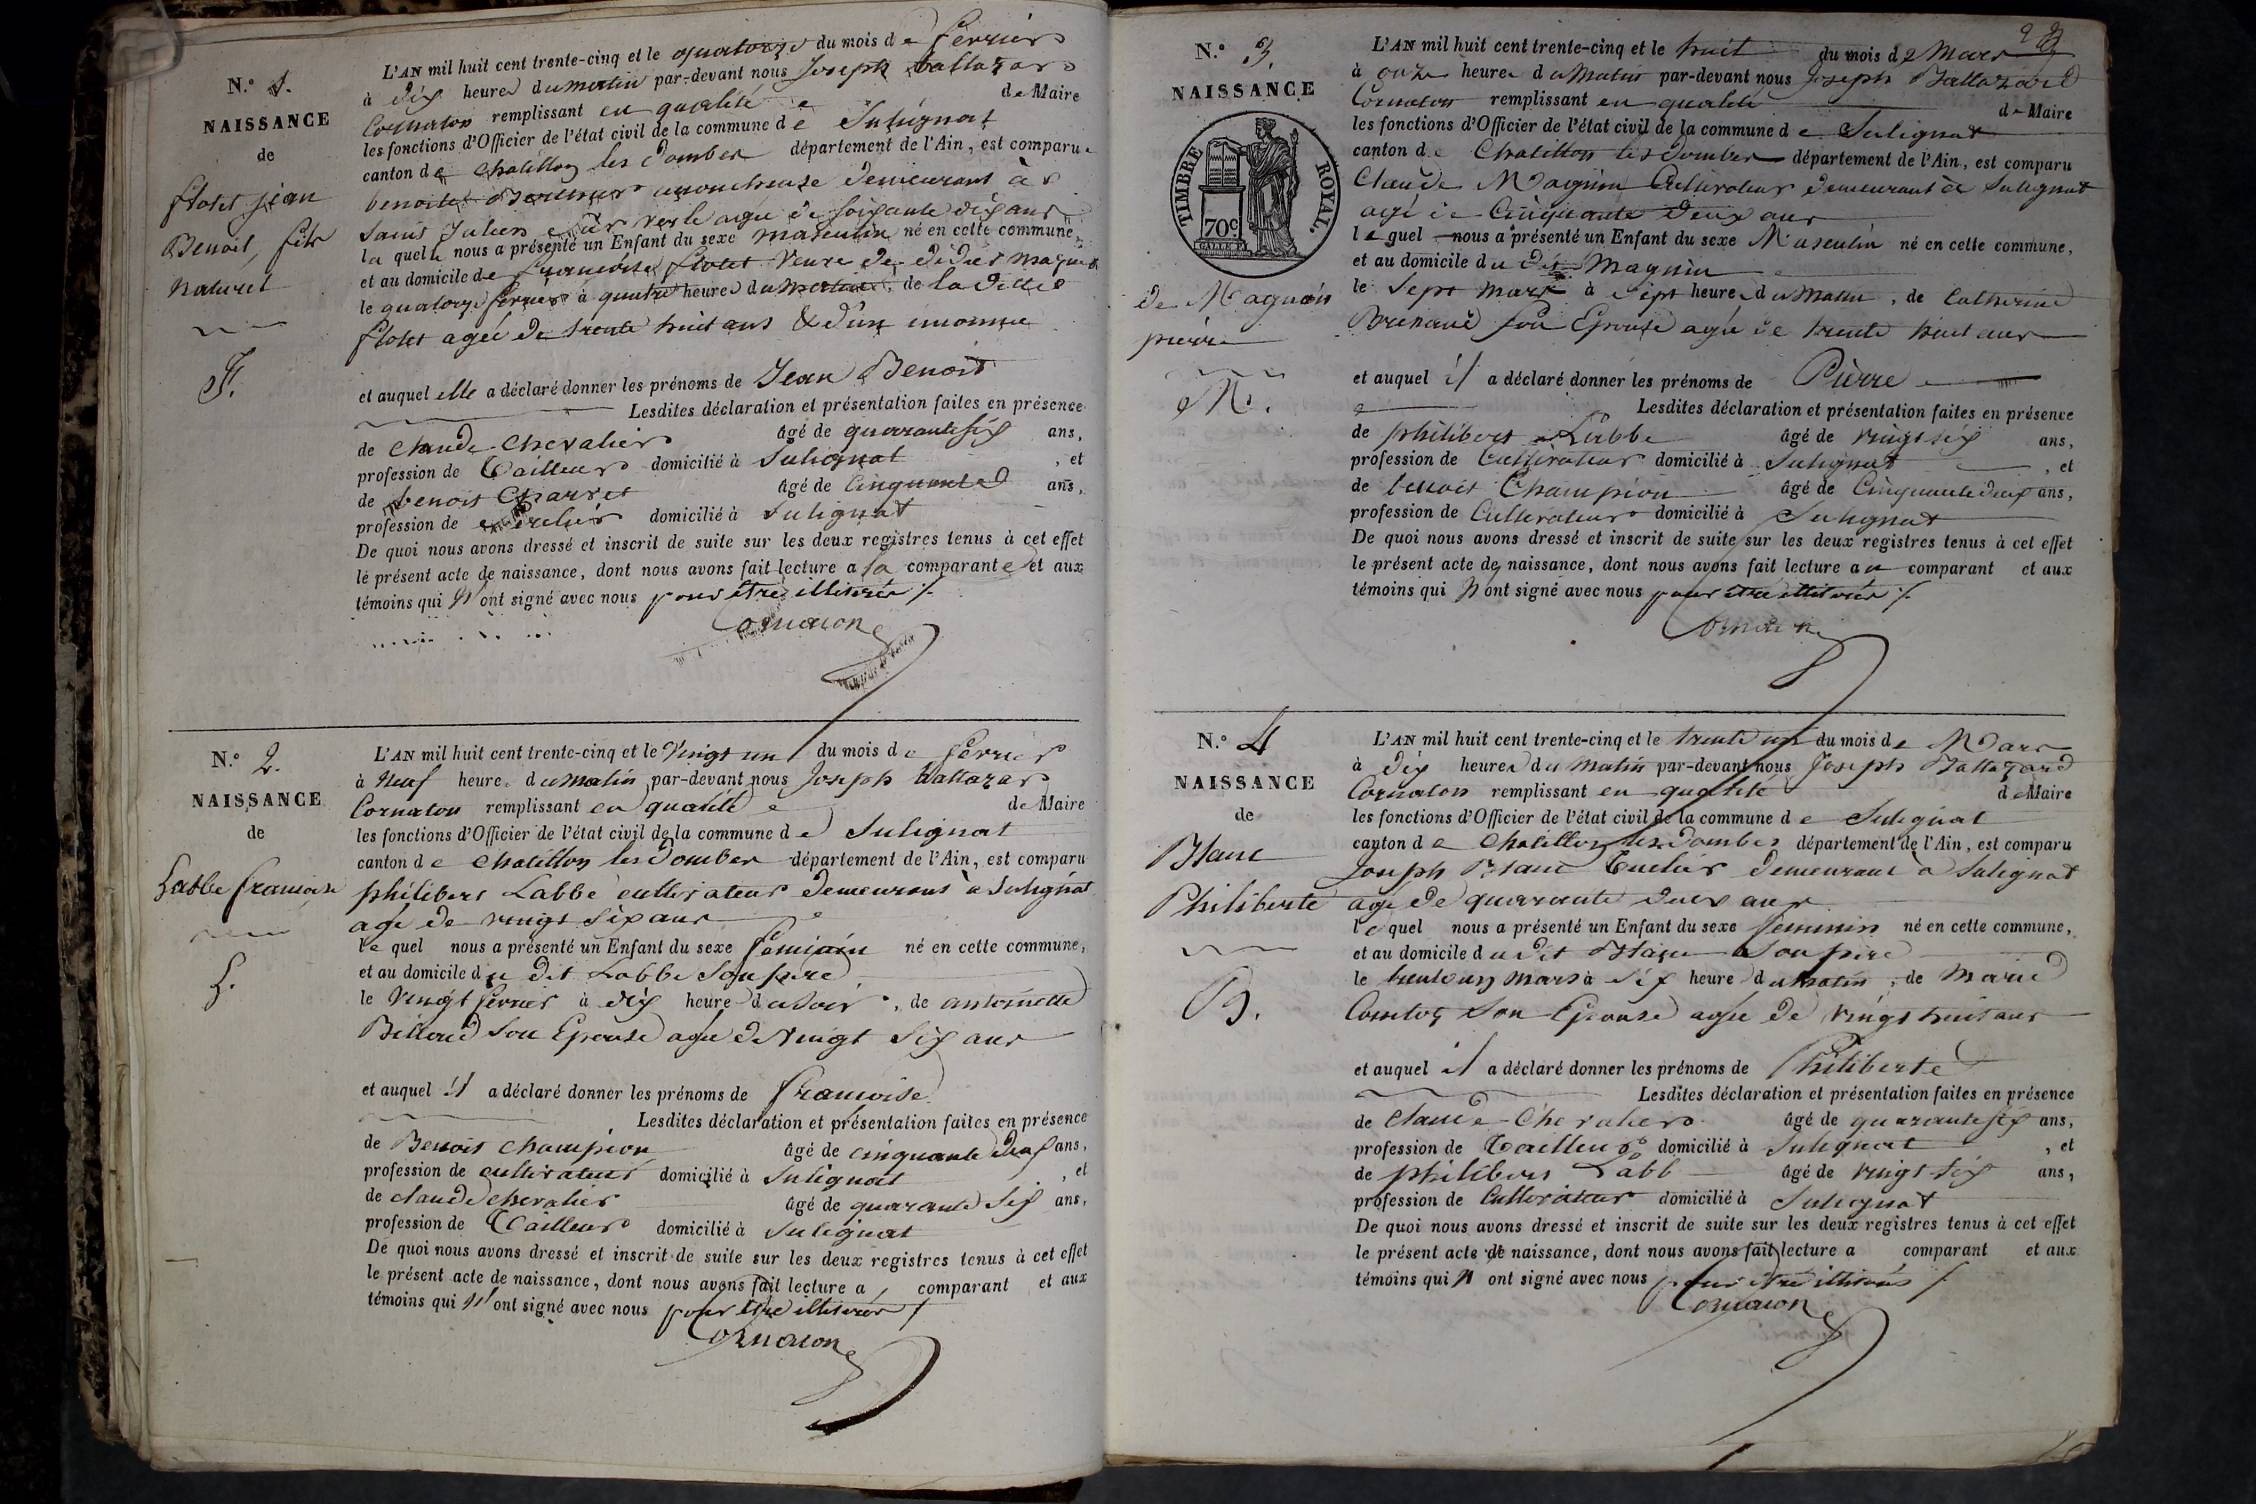 N.º 1.
NAISSANCE
de
flotet jean
Benoit, fils
naturel
F.
L'AN mil huit cent trente-cinq et le quatorze du mois de fevrier
à dix heures du matin par-devant nous Joseph Baltazard
Cornaton remplissant en qualité de Maire
les fonctions d'Officier de l'état civil de la commune de Sulignat
canton de Chatillon les Dombes département de l'Ain, est comparue
benoite accoucheuse demeurant à
Saint Julien sur vesle agée de soixante dix ans
laquelle nous a présenté un Enfant du sexe masculin né en cette commune,
et au domicile de françoise flotet veuve de didier magnin
le quatorze fevrier à quatre heures du matin, de la dite
flotet agée de trente huit ans & d'un inconnu
et auquel elle a déclaré donner les prénoms de Jean Benoit
Lesdites déclaration et présentation faites en présence
de claude chevalier âgé de quarante six ans,
profession de Tailleur domicilié à Sulignat, et
de benoit Charvet âgé de Cinquante ans,
profession de domicilié à Sulignat
De quoi nous avons dressé et inscrit de suite sur les deux registres tenus à cet effet
le présent acte de naissance, dont nous avons fait lecture a la comparante et aux
témoins qui N'ont signé avec nous pour être illitérés ./.
Cornaton
N.º 2.
NAISSANCE
de
Labbe francoise
L.
L'AN mil huit cent trente-cinq et le Vingt un du mois de fevrier
à Neuf heure du matin par-devant nous Joseph Baltazard
Cornaton remplissant en qualité de Maire
les fonctions d'Officier de l'état civil de la commune de Sulignat
canton de Chatillon les Dombes département de l'Ain, est comparu
philibert Labbe cultivateur demeurant à Sulignat
agé de vingt six ans
le quel nous a présenté un Enfant du sexe feminin né en cette commune,
et au domicile du dit Labbe son pere
le vingt fevrier à dix heure du soir, de antoinette
Billoud son Epouse agée de vingt six ans
et auquel il a déclaré donner les prénoms de francoise
Lesdites déclaration et présentation faites en présence
de Benoit Champion âgé de cinquante deux ans,
profession de cultivateur domicilié à Sulignat, et
de claude chevalier âgé de quarante six ans,
profession de Tailleur domicilié à Sulignat
De quoi nous avons dressé et inscrit de suite sur les deux registres tenus à cet effet
le présent acte de naissance, dont nous avons fait lecture a comparant et aux
témoins qui N'ont signé avec nous pour être illitérés ./.
Cornaton
N.º 3.
NAISSANCE
TIMBRE ROYAL.
70c
de Magnin
pierre
M.
L'AN mil huit cent trente-cinq et le huit du mois de Mars
à onze heures du Matin par-devant nous Joseph Baltazard
Cornaton remplissant en qualité de Maire
les fonctions d'Officier de l'état civil de la commune de Sulignat
canton de Chatillon les Dombes département de l'Ain, est comparu
Claude Magnin Cultivateur demeurant à Sulignat
agé de Cinquante deux ans
le quel nous a présenté un Enfant du sexe Masculin né en cette commune,
et au domicile du dit Magnin
le Sept mars à Sept heures du Matin, de Catherine
son Epouse agée de trente huit ans
et auquel il a déclaré donner les prénoms de Pierre
Lesdites déclaration et présentation faites en présence
de philibert Labbe âgé de vingt six ans,
profession de Cultivateur domicilié à Sulignat, et
de benoit Champion âgé de Cinquante deux ans,
profession de Cultivateur domicilié à Sulignat
De quoi nous avons dressé et inscrit de suite sur les deux registres tenus à cet effet
le présent acte de naissance, dont nous avons fait lecture au comparant et aux
témoins qui N'ont signé avec nous pour être illitérés ./.
Cornaton
N.º 4
NAISSANCE
de
Blanc
Philiberte
B.
L'AN mil huit cent trente-cinq et le trente un du mois de Mars
à dix heures du Matin par-devant nous Joseph Baltazard
Cornaton remplissant en qualité de Maire
les fonctions d'Officier de l'état civil de la commune de Sulignat
canton de Chatillon les Dombes département de l'Ain, est comparu
Joseph Blanc demeurant à Sulignat
agé de quarante deux ans
le quel nous a présenté un Enfant du sexe feminin né en cette commune,
et au domicile du dit Blanc Son pere
le trente un mars à Six heure du Matin, de Marie
son Epouse agée de vingt huit ans
et auquel il a déclaré donner les prénoms de Philiberte
Lesdites déclaration et présentation faites en présence
de claude Chevalier âgé de quarante six ans,
profession de Tailleur domicilié à Sulignat, et
de philibert Labb âgé de vingt six ans,
profession de Cultivateur domicilié à Sulignat
De quoi nous avons dressé et inscrit de suite sur les deux registres tenus à cet effet
le présent acte de naissance, dont nous avons fait lecture a comparant et aux
témoins qui N ont signé avec nous pour être illitérés ./.
Cornaton